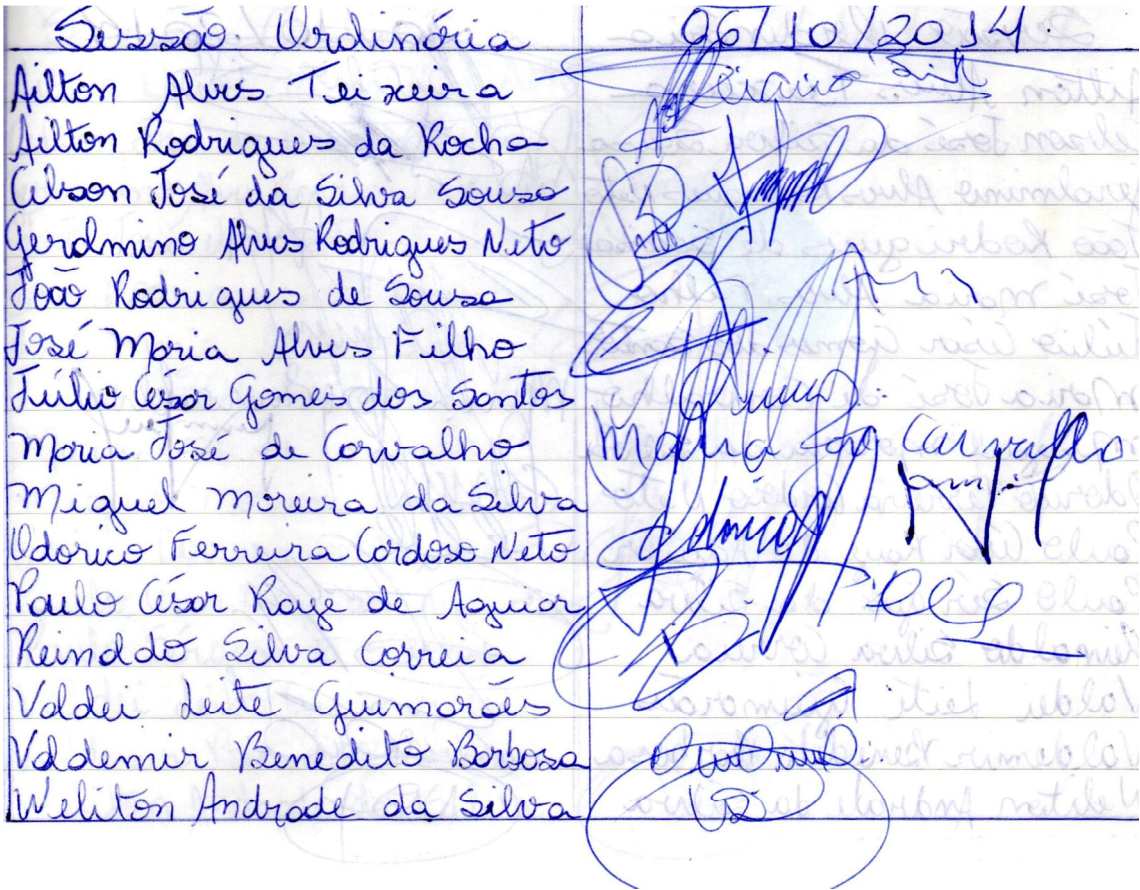 Sessão Ordinária 06/10/2014
Ailton Alves Teixeira
Ailton Rodrigues da Rocha
Celson José da Silva Sousa
Gerolmino Alves Rodrigues Neto
João Rodrigues de Sousa
José Maria Alves Filho
Túlio César Gomes dos Santos
Maria José de Carvalho Maria José Carvalho
Miguel Moreira da Silva
Odorico Ferreira Cardoso Neto Odorico
Paulo César Raye de Aguiar
Reinaldo Silva Correia
Valdei Leite Guimarães
Valdemir Benedito Barbosa
Weliton Andrade da Silva